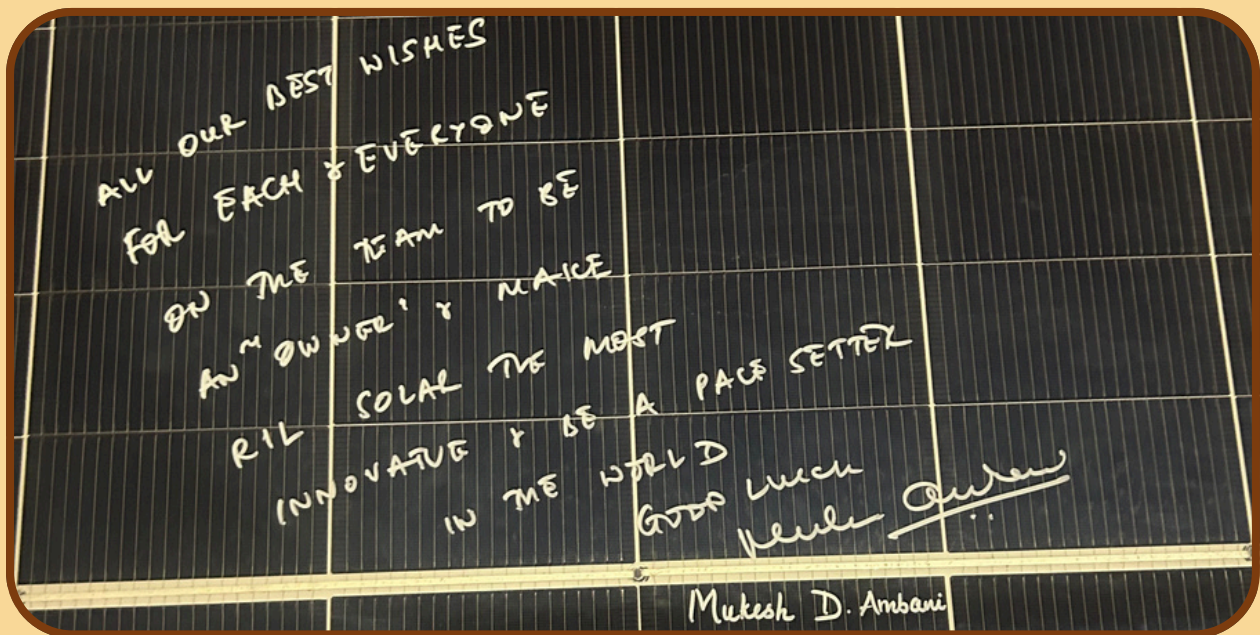 ALL OUR BEST WISHES
FOR EACH & EVERYONE
ON THE TEAM TO BE
AN "OWNER" & MAKE
RIL SOLAR THE MOST
INNOVATIVE & BE A PACE SETTER
IN THE WORLD
GOOD LUCK
Mukesh Ambani
Mukesh D. Ambani